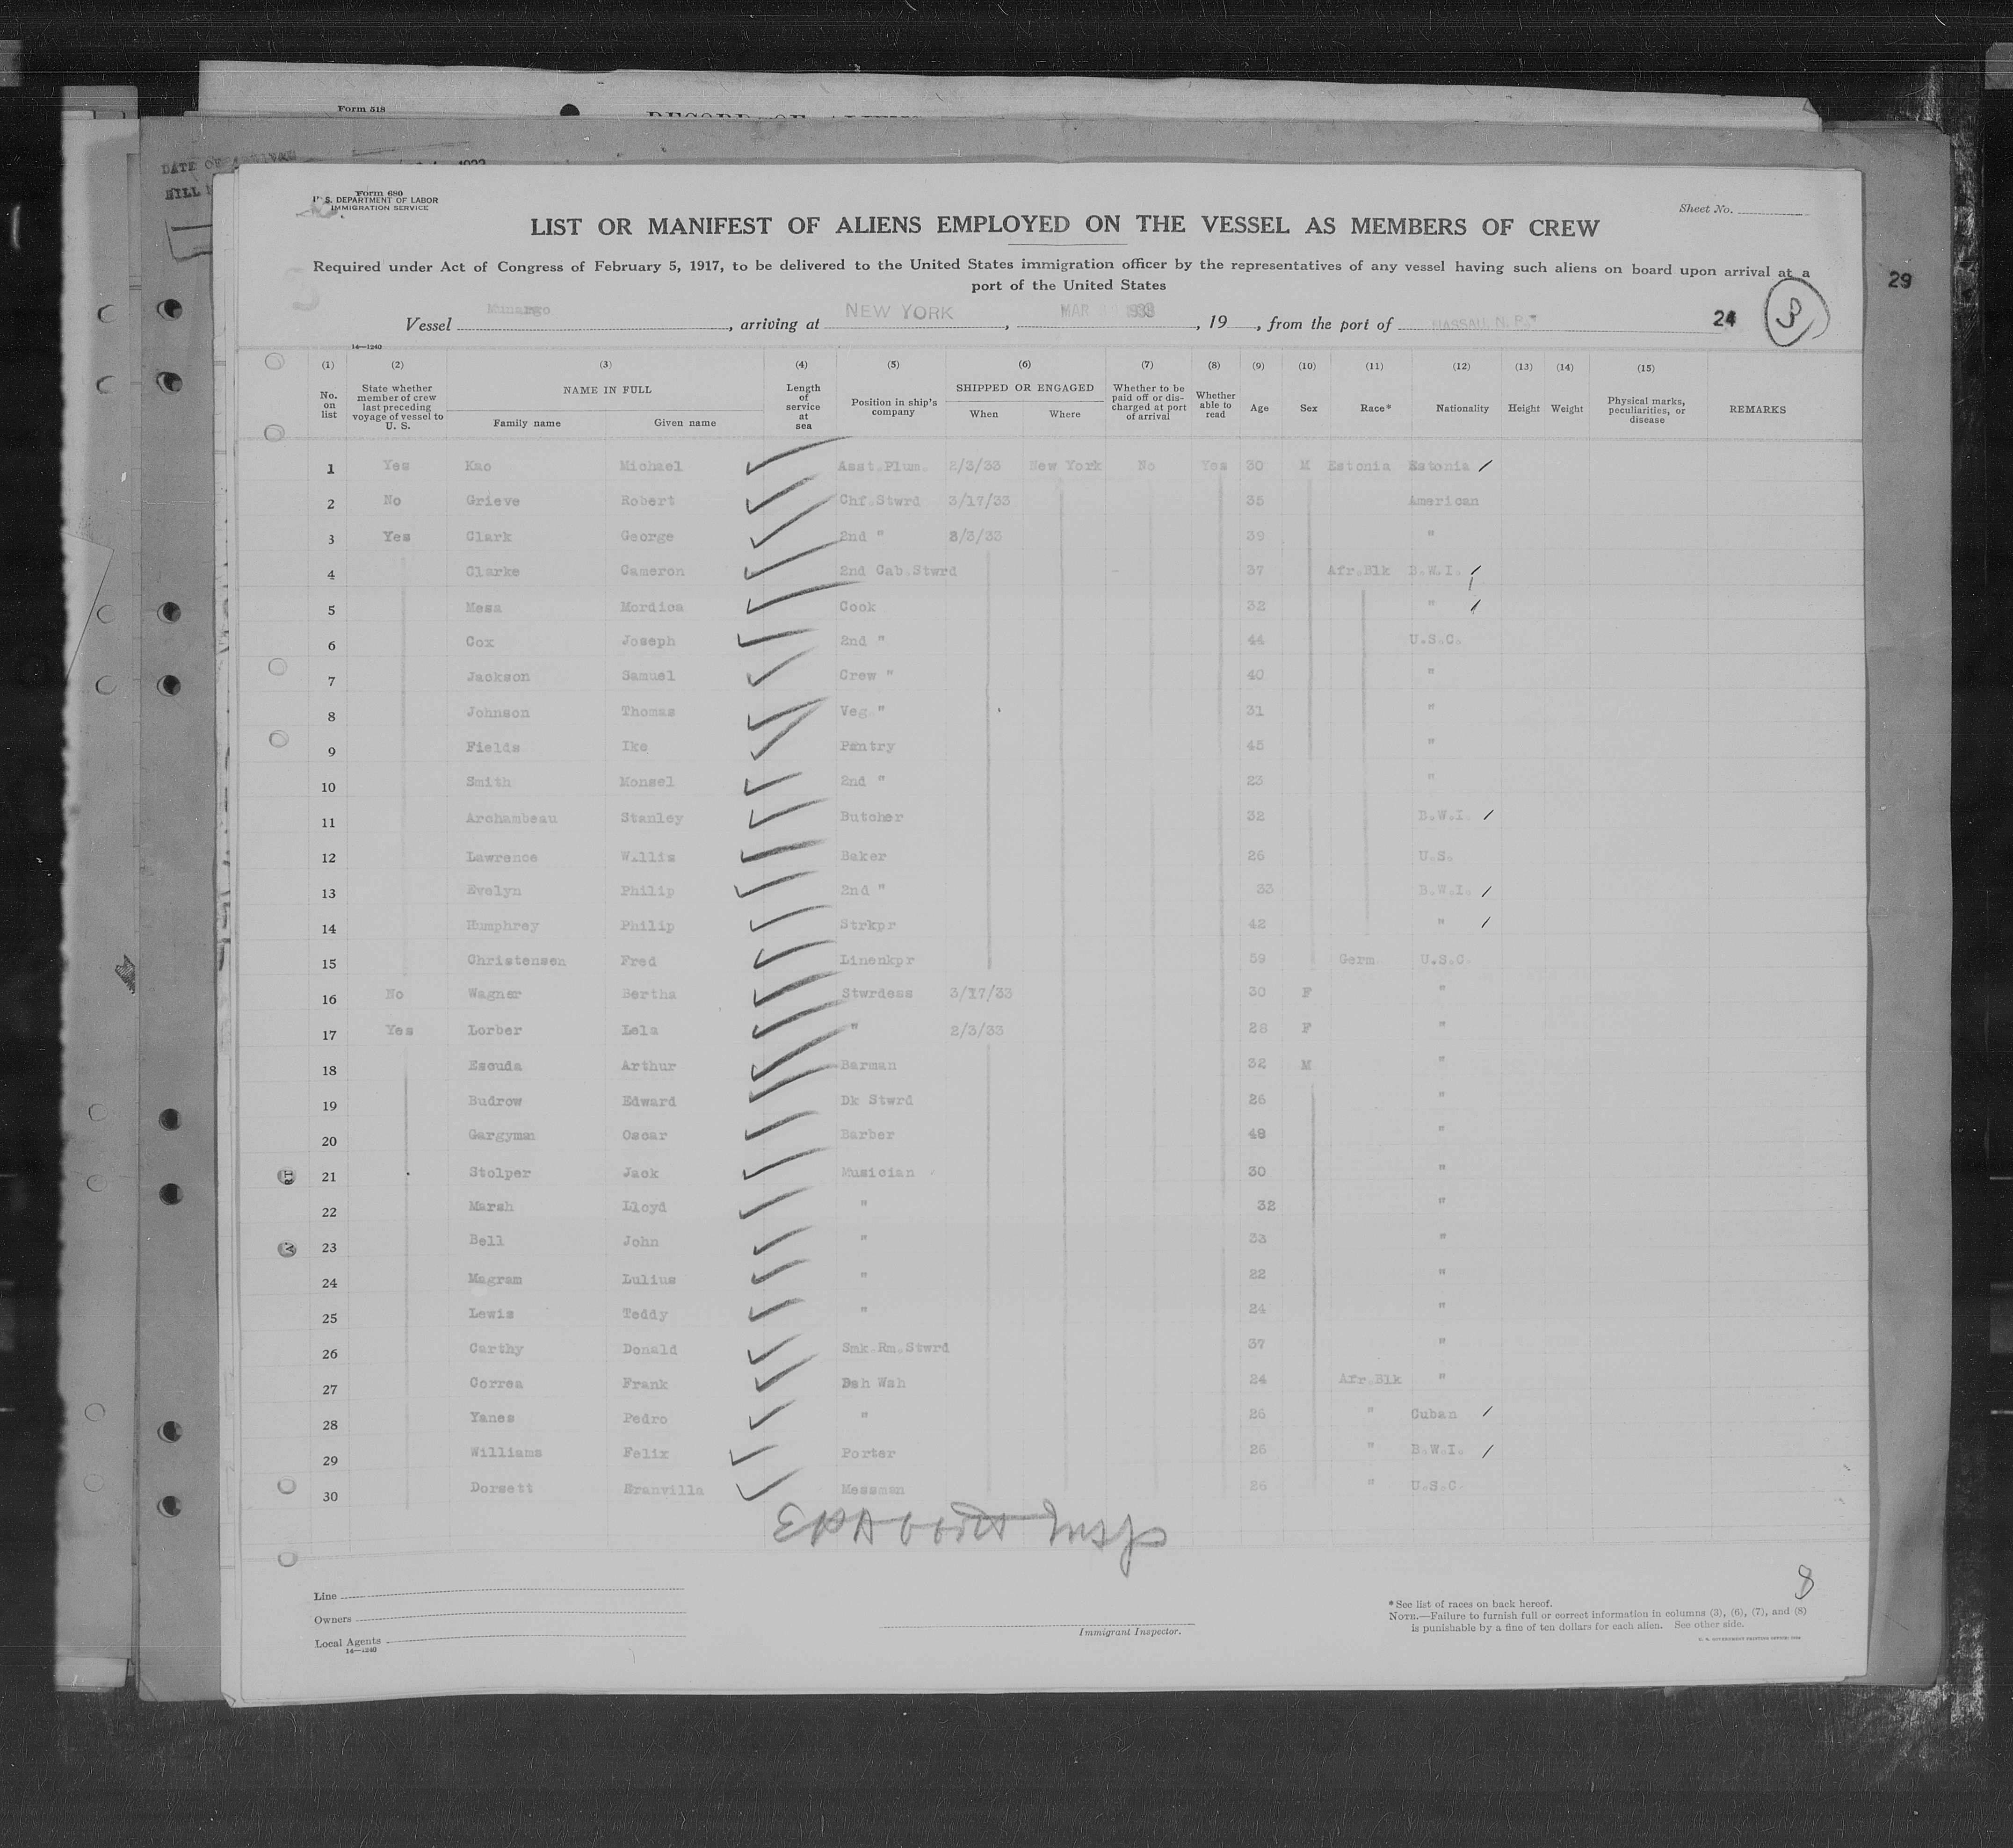 Form 518
DATE OF ARRIVAL
Form 680
U. S. DEPARTMENT OF LABOR
IMMIGRATION SERVICE
Sheet No.
LIST OR MANIFEST OF ALIENS EMPLOYED ON THE VESSEL AS MEMBERS OF CREW
Required under Act of Congress of February 5, 1917, to be delivered to the United States immigration officer by the representatives of any vessel having such aliens on board upon arrival at a
port of the United States
29
Vessel Munargo, arriving at NEW YORK, MAR 1933, 19, from the port of NASSAU, N. P. 24 3
14—1240
(1) (2) (3) (4) (5) (6) (7) (8) (9) (10) (11) (12) (13) (14) (15)
No. on list State whether member of crew last preceding voyage of vessel to U. S. NAME IN FULL Family name Given name Length of service at sea Position in ship's company SHIPPED OR ENGAGED When Where Whether to be paid off or discharged at port of arrival Whether able to read Age Sex Race* Nationality Height Weight Physical marks, peculiarities, or disease REMARKS
1 Yes Kao Michael Asst.Plum. 2/3/33 New York No Yes 30 M Estonia Estonia
2 No Grieve Robert Chf.Stwrd 3/17/33 35 American
3 Yes Clark George 2nd " 3/3/33 39 "
4 Clarke Cameron 2nd Cab.Stwrd 37 Afr.Blk B.W.I.
5 Mesa Mordica Cook 32 "
6 Cox Joseph 2nd " 44 U.S.C.
7 Jackson Samuel Crew " 40 "
8 Johnson Thomas Veg " 31 "
9 Fields Ike Pantry 45 "
10 Smith Monsel 2nd " 23 "
11 Archambeau Stanley Butcher 32 B.W.I.
12 Lawrence Willis Baker 26 U.S.
13 Evelyn Philip 2nd " 33 B.W.I.
14 Humphrey Philip Strkpr 42 "
15 Christensen Fred Linenkpr 59 Germ U.S.C.
16 No Wagner Bertha Stwrdess 3/17/33 30 F "
17 Yes Lorber Lela " 2/3/33 28 F "
18 Escuda Arthur Barman 32 M "
19 Budrow Edward Dk Stwrd 26 "
20 Gargyman Oscar Barber 48 "
21 Stolper Jack Musician 30 "
22 Marsh Lloyd " 32 "
23 Bell John " 33 "
24 Magram Lulius " 22 "
25 Lewis Teddy " 24 "
26 Carthy Donald Smk.Rm.Stwrd 37 "
27 Correa Frank Dsh Wah 24 Afr.Blk "
28 Yanes Pedro " 26 " Cuban
29 Williams Felix Porter 26 " B.W.I.
30 Dorsett Granvilla Messman 26 " U.S.C.
8
Line
Owners
Local Agents
14—1240
Immigrant Inspector.
*See list of races on back hereof.
NOTE.—Failure to furnish full or correct information in columns (3), (6), (7), and (8)
is punishable by a fine of ten dollars for each alien. See other side.